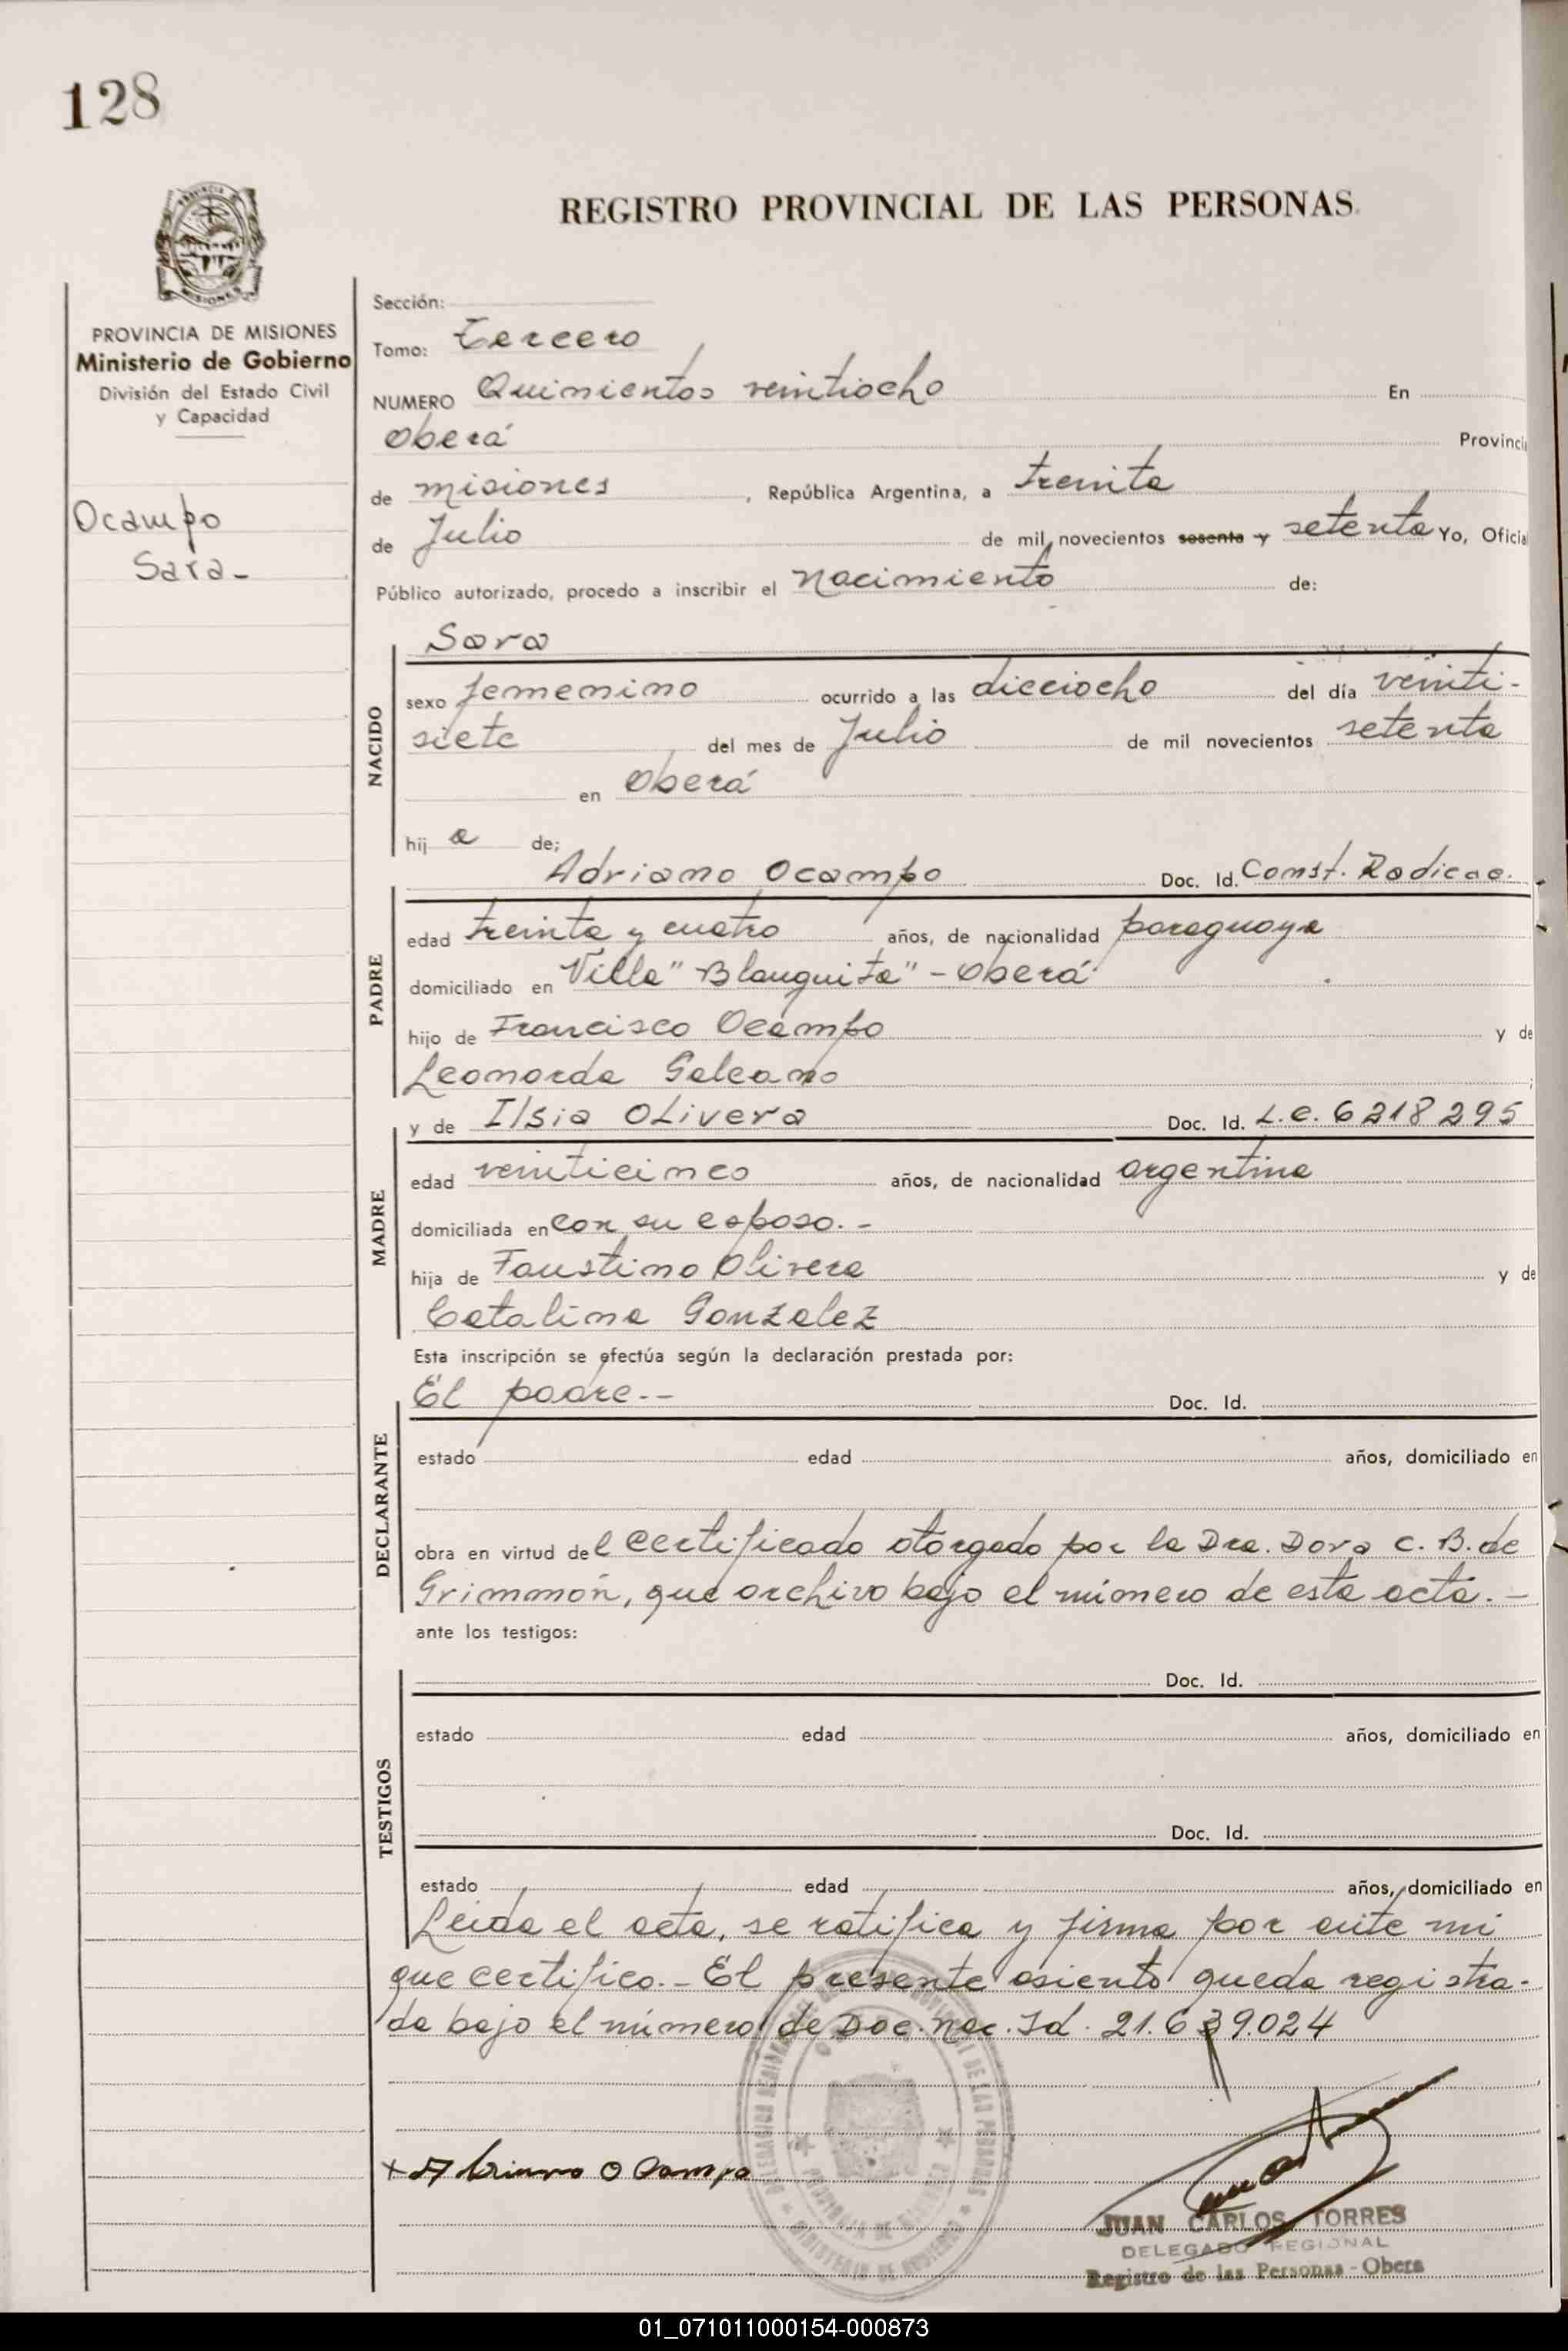 128
REGISTRO PROVINCIAL DE LAS PERSONAS
PROVINCIA DE MISIONES
Ministerio de Gobierno
División del Estado Civil
y Capacidad
Ocampo
Sara-
Sección:
Tomo: Tercero
NUMERO Quinientos veintiocho En
Oberá Provinci
de misiones, República Argentina, a treinta
de Julio de mil novecientos sesenta y setenta Yo, Oficia
Público autorizado, procedo a inscribir el nacimiento de:
Sara
NACIDO
sexo femenino ocurrido a las dieciocho del día veinti-
siete del mes de Julio de mil novecientos setenta
en Oberá
hij a de;
Adriano Ocampo Doc. Id. Const. Radicac.
PADRE
edad treinta y cuatro años, de nacionalidad paraguaya
domiciliado en Villa "Blanquita" - Oberá
hijo de Francisco Ocampo y de
Leonarda Galeano
y de Ilsia Olivera Doc. Id. L.C. 6218295
MADRE
edad veinticinco años, de nacionalidad argentina
domiciliada en con su esposo.-
hija de Faustino Olivera y de
Catalina Gonzalez
Esta inscripción se efectúa según la declaración prestada por:
El padre.-- Doc. Id.
DECLARANTE
estado edad años, domiciliado en
obra en virtud del certificado otorgado por la Dra. Dora C. B. de
Grimmón, que archivo bajo el número de esta acta.-
ante los testigos:
Doc. Id.
TESTIGOS
estado edad años, domiciliado en
Doc. Id.
estado edad años, domiciliado en
Leida el acta, se ratifica y firma por ante mi
que certifico.- El presente asiento queda registra-
da bajo el número de Doc. Nac. Id. 21.639.024
x Adriano Ocampo
JUAN CARLOS TORRES
DELEGADO REGIONAL
Registro de las Personas - Obera
01_071011000154-000873